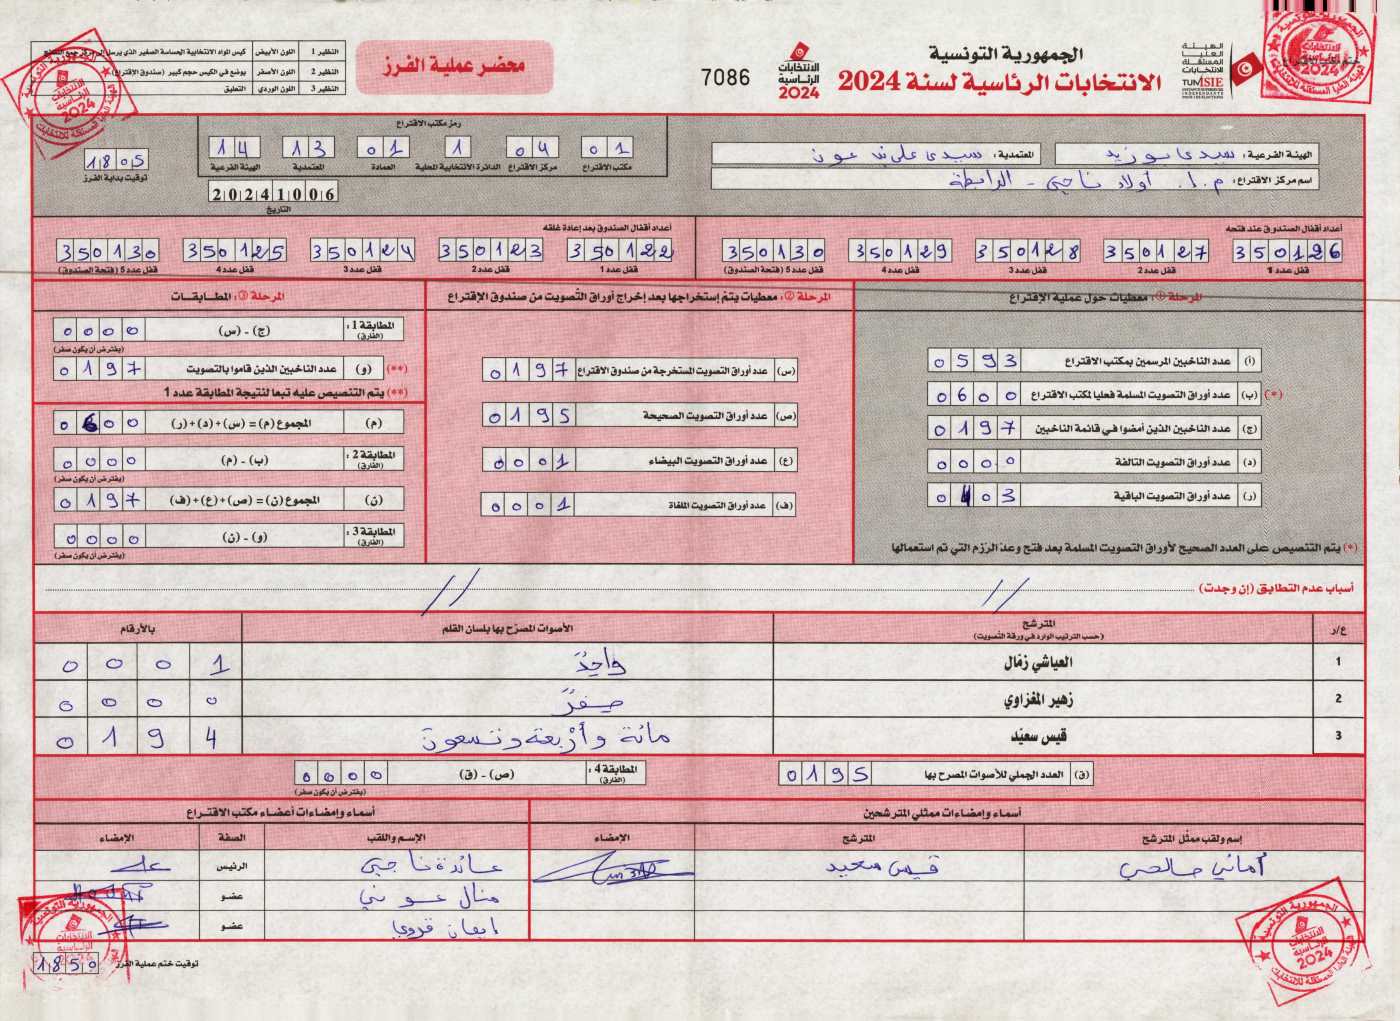 الجمهورية التونسية
الانتخابات الرئاسية لسنة 2024
الهيئة العليا المستقلة للانتخابات
TUNISIE
ختم مكتب الاقتراع
7086
الانتخابات الرئاسية 2024
محضر عملية الفرز
النظير 1 اللون الأبيض
النظير 2 اللون الأصفر يوضع في الكيس حجم كبير (صندوق الإقتراع)
النظير 3 اللون الوردي التعليق
الهيئة الفرعية : سيدي بوزيد
المعتمدية : سيدي علي بن عون
اسم مركز الاقتراع : م.ا. أولاد ناجي - الرابطة
رمز مكتب الاقتراع
01 04 1 01 13 14
مكتب الاقتراع مركز الاقتراع الدائرة الانتخابية المحلية العمادة المعتمدية الهيئة الفرعية
1805
توقيت بداية الفرز
20241006
التاريخ
أعداد أقفال الصندوق عند فتحه
350126 350127 350128 350129 350130
قفل عدد 1 قفل عدد 2 قفل عدد 3 قفل عدد 4 قفل عدد 5 (فتحة الصندوق)
أعداد أقفال الصندوق بعد إعادة غلقه
350122 350123 350124 350125 350130
قفل عدد 1 قفل عدد 2 قفل عدد 3 قفل عدد 4 قفل عدد 5 (فتحة الصندوق)
المرحلة ①: معطيات حول عملية الإقتراع
(أ) عدد الناخبين المرسمين بمكتب الاقتراع 0593
(*) (ب) عدد أوراق التصويت المسلمة فعليا لمكتب الاقتراع 0600
(ج) عدد الناخبين الذين أمضوا في قائمة الناخبين 0197
(د) عدد أوراق التصويت التالفة 0000
(ر) عدد أوراق التصويت الباقية 0403
(*) يتم التنصيص على العدد الصحيح لأوراق التصويت المسلمة بعد فتح وعدّ الرّزم التي تم استعمالها
المرحلة ②: معطيات يتمّ إستخراجها بعد إخراج أوراق التّصويت من صندوق الإقتراع
(س) عدد أوراق التصويت المستخرجة من صندوق الاقتراع 0197
(ص) عدد أوراق التصويت الصحيحة 0195
(ع) عدد أوراق التصويت البيضاء 0001
(ف) عدد أوراق التصويت الملغاة 0001
المرحلة ③: المطابقات
المطابقة 1 : (الفارق) (ج) - (س) 0000
(يفترض أن يكون صفر)
(**) (و) عدد الناخبين الذين قاموا بالتصويت 0197
(**) يتم التنصيص عليه تبعا لنتيجة المطابقة عدد 1
(م) المجموع (م) = (س)+(د)+(ر) 0600
المطابقة 2 : (الفارق) (ب) - (م) 0000
(يفترض أن يكون صفر)
(ن) المجموع (ن) = (ص)+(ع)+(ف) 0197
المطابقة 3 : (الفارق) (و) - (ن) 0000
(يفترض أن يكون صفر)
أسباب عدم التطابق (إن وجدت) // //
ع/ر المترشح الأصوات المصرّح بها بلسان القلم بالأرقام
(حسب الترتيب الوارد في ورقة التصويت)
1 العياشي زمّال واحد 0001
2 زهير المغزاوي صفر 0000
3 قيس سعيّد مائة وأربعة وتسعون 0194
(ق) العدد الجملي للأصوات المصرح بها 0195
المطابقة 4 : (الفارق) (ص) - (ق) 0000
(يفترض أن يكون صفر)
أسماء وإمضاءات ممثلي المترشحين
إسم ولقب ممثّل المترشح المترشح الإمضاء
أماني صالحي قيس سعيد
أسماء وإمضاءات أعضاء مكتب الاقتراع
الإسم واللقب الصفة الإمضاء
عائدة ناجي الرئيس
منال عوني عضو
ايمان قروي عضو
توقيت ختم عملية الفرز 1850